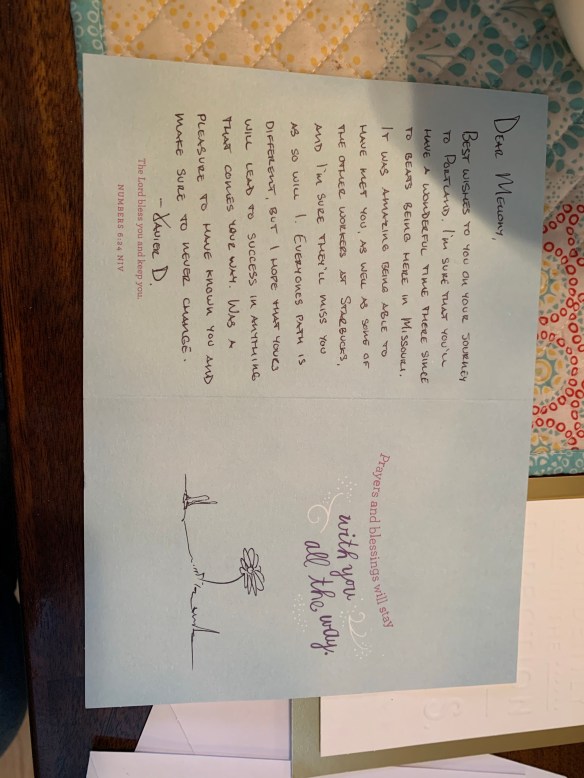 Dear Melony,
Best wishes to you on your journey
to Portland, I'm sure that you'll
have a wonderful time there since
to beats being here in Missouri.
It was amazing being able to
have met you, as well as some of
the other workers at Starbucks,
and I'm sure they'll miss you
as so will I. Everyones path is
different, but I hope that yours
will lead to success in anything
that comes your way. Was a
pleasure to have known you and
make sure to never change.
- Xavier D.
The Lord bless you and keep you.
NUMBERS 6:24 NIV
Prayers and blessings will stay
with you
all the way.